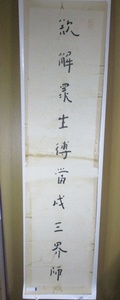 欲解眾生縛當成三界師